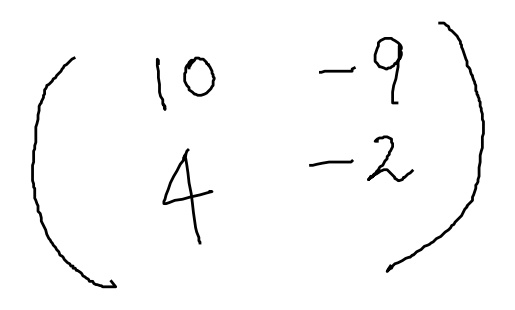 10 -9
4 -2